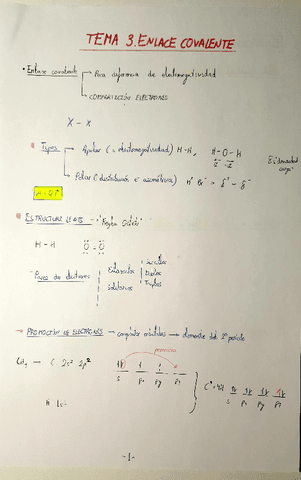 TEMA 3. ENLACE COVALENTE
• Enlace covalente → Poca diferencia de electronegatividad
→ COMPARTICIÓN ELECTRONES
X - X
Tipos → Apolar (= electronegatividad) H-H, H-O-H
→ Polar (distribución e⁻ asimétrica)
δ: densidad carga
ESTRUCTURA LEWIS → "Regla Octeto"
H - H
Pares de electrones
Enlazantes
Sencillos
Dobles
Triples
Solitarios
→ PROMOCIÓN DE ELECTRONES → → elementos del 2º periodo
promoción
CH₄ → C: 2s² 2p²
s px py pz
s px py pz
-1-